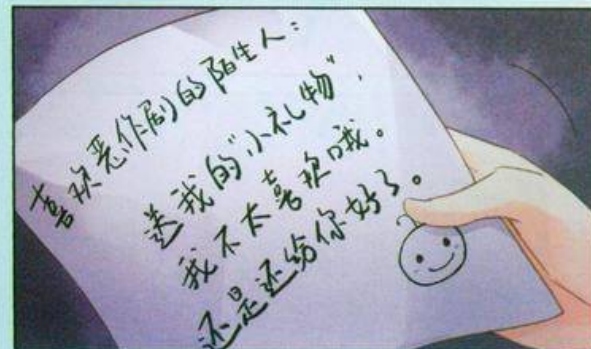 喜欢恶作剧的陌生人：
送我的“小礼物”，
我不太喜欢哦。
还是还给你好了。